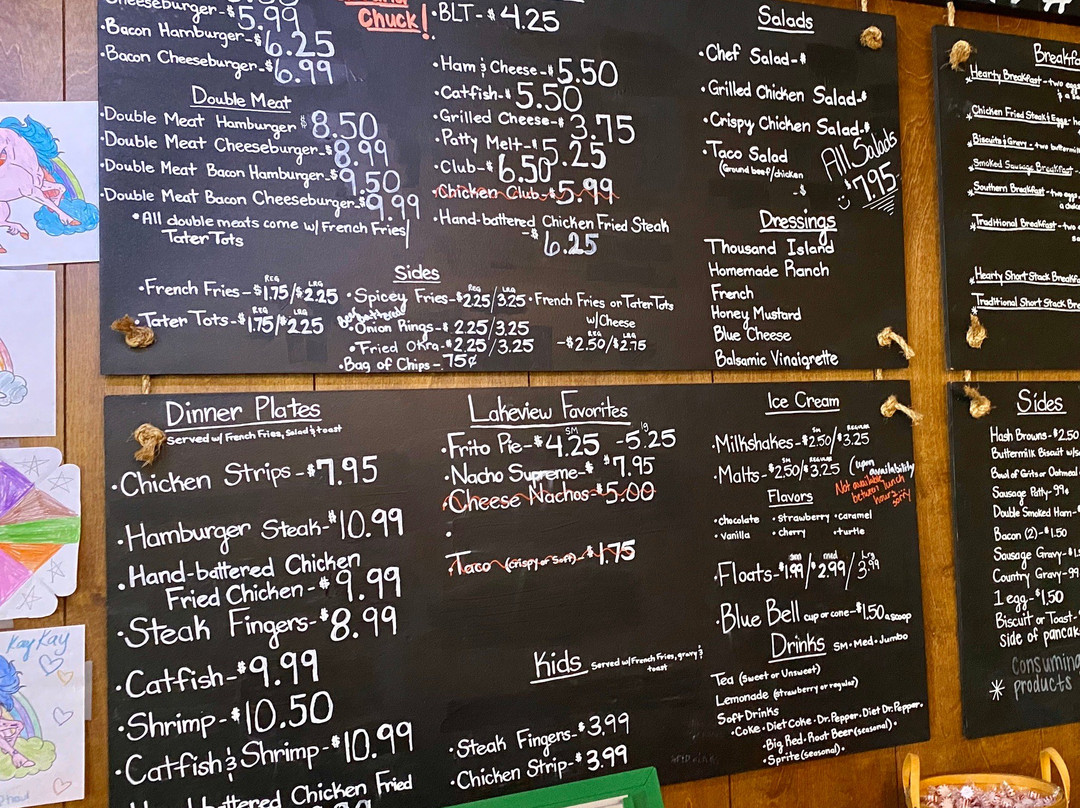 Cheeseburger-$5.99
•Bacon Hamburger-$6.25
•Bacon Cheeseburger-$6.99
Double Meat
•Double Meat Hamburger $8.50
•Double Meat Cheeseburger-$8.99
•Double Meat Bacon Hamburger-$9.50
•Double Meat Bacon Cheeseburger-$9.99
•All double meats come w/ French Fries/
Tater Tots
Chuck!
•BLT-$4.25
•Ham & Cheese-$5.50
•Catfish-$5.50
•Grilled Cheese-$3.75
•Patty Melt-$5.25
•Club-$6.50
•Chicken Club-$5.99
•Hand-battered Chicken Fried Steak
-$6.25
Sides
REG LRG
•French Fries-$1.75/$2.25
REG LRG
•Tater Tots-$1.75/$2.25
REG LRG
•Spicey Fries-$2.25/3.25
•Onion Rings-$2.25/3.25
•Fried Okra-$2.25/3.25
•Bag of Chips-.75¢
•French Fries or Tater Tots
w/Cheese
REG LRG
-$2.50/$2.75
Salads
•Chef Salad-$
•Grilled Chicken Salad-$
•Crispy Chicken Salad-$
•Taco Salad
(Ground beef/chicken
-$
All Salads
$7.95
Dressings
Thousand Island
Homemade Ranch
French
Honey Mustard
Blue Cheese
Balsamic Vinaigrette
Hearty Breakfast-two
*Chicken Fried Steak & Eggs-
*Biscuits & Gravy-two
*Smoked Sausage Breakfast-
*Southern Breakfast-two
*Traditional Breakfast-two
*Hearty Short Stack
*Traditional Short Stack
Dinner Plates
Served w/ French Fries, Salad & toast
•Chicken Strips-$7.95
•Hamburger Steak-$10.99
•Hand-battered Chicken
Fried Chicken-$9.99
•Steak Fingers-$8.99
•Catfish-$9.99
•Shrimp-$10.50
•Catfish & Shrimp-$10.99
battered Chicken Fried
Lakeview Favorites
SM lg
•Frito Pie-$4.25 -5.25
•Nacho Supreme-$ $7.95
•Cheese Nachos-$5.00
•
•Taco (crispy or Soft)-$1.75
Kids Served w/French Fries, gravy &
toast
•Steak Fingers-$3.99
•Chicken Strip-$3.99
Ice Cream
SM REGULAR
•Milkshakes-$2.50/$3.25
SM REGULAR
•Malts-$2.50/$3.25 (upon
availability
Not available
between lunch
hours
sorry
Flavors
•chocolate •strawberry •caramel
•vanilla •cherry •turtle
sm med lrg
•Floats-$1.99/$2.99/3.99
•Blue Bell cup or cone-$1.50 a scoop
Drinks SM•Med•Jumbo
Tea (Sweet or Unsweet)
Lemonade (strawberry or regular)
Soft Drinks
•Coke•Diet Coke•Dr. Pepper•Diet Dr. Pepper•
•Big Red•Root Beer (seasonal)•
•Sprite (seasonal)•
Sides
Hash Browns-$2.50
Buttermilk Biscuit
Bowl of Grits or Oatmeal
Sausage Patty-99¢
Double Smoked Ham-
Bacon (2)-$1.50
Sausage Gravy-
Country Gravy-99
1 egg-$1.50
Biscuit or Toast-
side of
Consuming
*products
Kay Kay